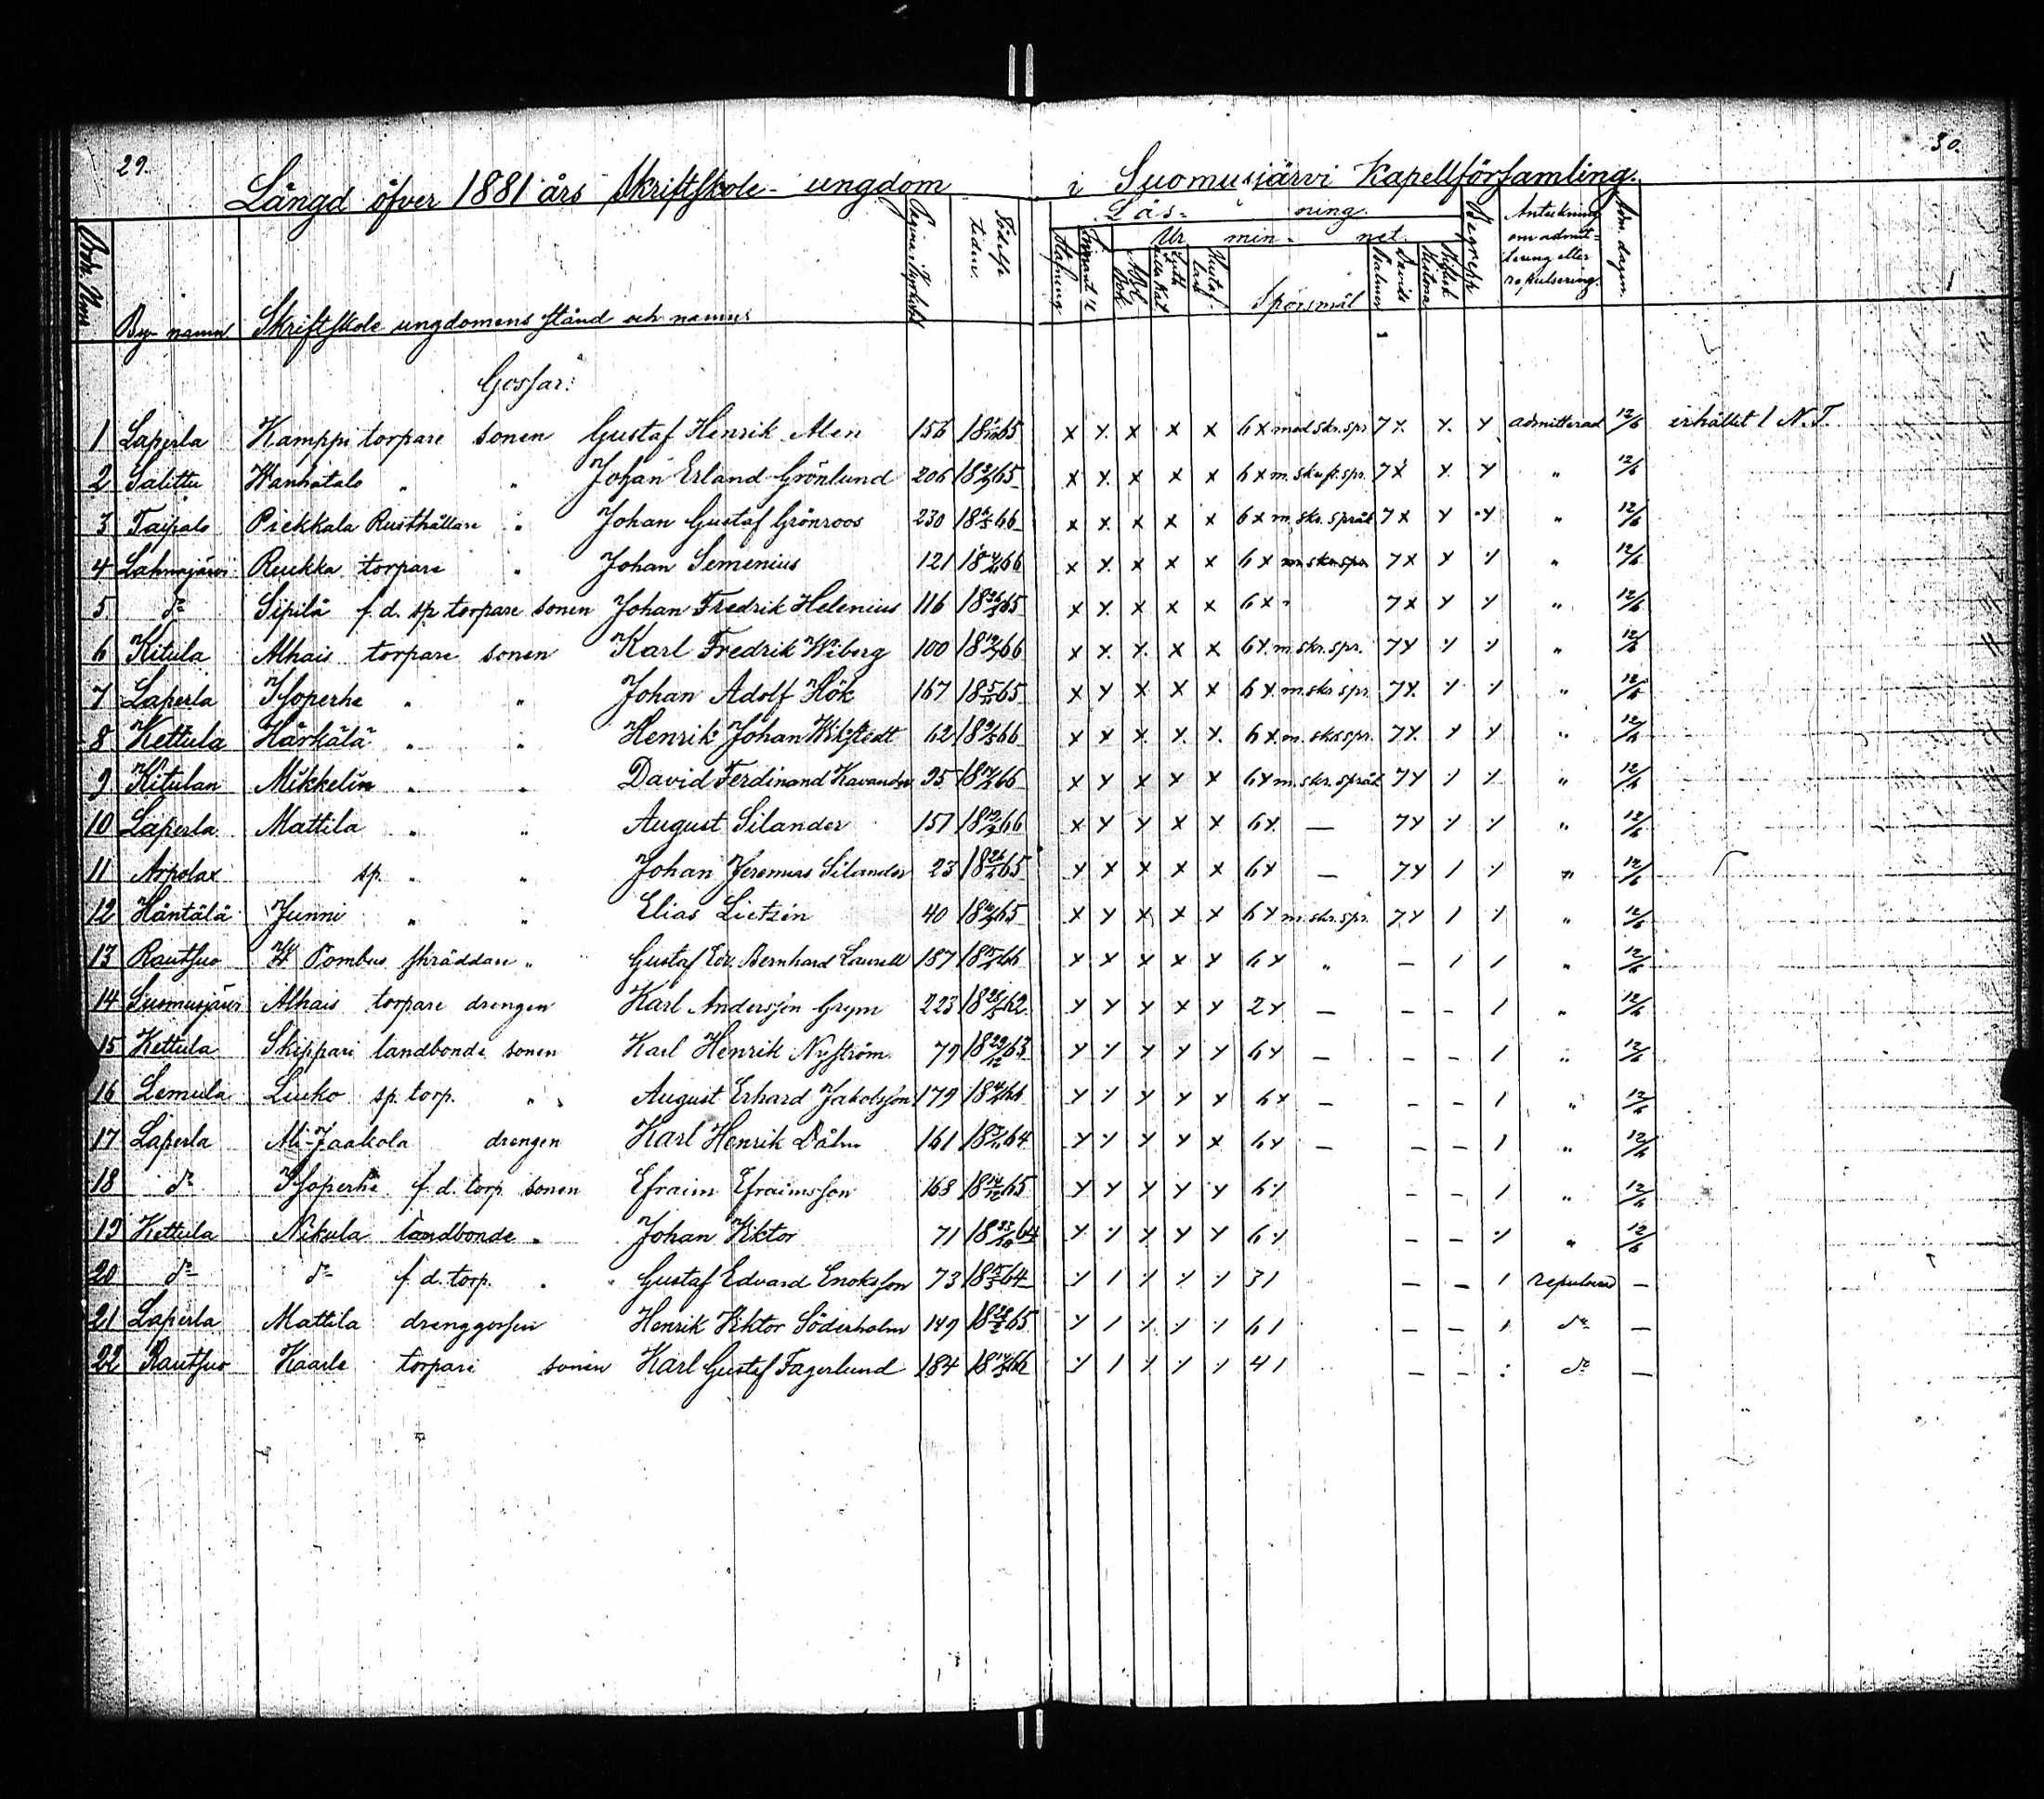 29.
30.
Längd öfver 1881 års Skriftskole-ungdom i Suomusjärvi Kapellförsamling.
Läs- ning.
Ur min- net.
By-namn. Skriftskole ungdomens stånd och namn: Födelse tiden. Stafning Abc Bok Spörsmål Davids Psalmer Begrepp Anteckning om admit-tering eller repulsering. Adm. dagen.
Gossar:
1 Laperla Kamppi torpare sonen Gustaf Henrik Alen 156 65 x x x x x 6 x med skr. spr. 7 x x x admitterad 12/6 erhållit 1 N.T.
2 Salittu Wanhatalo " " Johan Erland Grönlund 206 65 x x x x x 6 x m. skr. spr. 7 x x x " 12/6
3 Taipale Piekkala Rusthållare " Johan Gustaf Grönroos 230 66 x x x x x 6 x m. skr. språk 7 x x x " 12/6
4 Lahnajärvi Ruukka torpare " Johan Semenius 121 66 x x x x x 6 x m skr. spr. 7 x x x " 12/6
5 do Sipilä f.d. sp torpare sonen Johan Fredrik Helenius 116 65 x x x x x 6 x " 7 x x x " 12/6
6 Kitula Alhais torpare sonen Karl Fredrik Wiberg 100 66 x x x x x 6 x m. skr. spr. 7 x x x " 12/6
7 Laperla Isoperhe " " Johan Adolf Hök 167 65 x x x x x 6 x m. skr spr. 7 x x x " 12/6
8 Kettula Härkälä " " Henrik Johan Wikstedt 62 66 x x x x x 6 x m. skr spr. 7 x x x " 12/6
9 Kitulan Mikkelin " " David Ferdinand Kavander 95 x x x x x 6 x m. skr. språk 7 x x x " 12/6
10 Laperla Mattila " " August Silander 157 66 x x x x x 6 x — 7 x x x " 12/6
11 Arpelax sp. " " Johan Silander 23 18 26/ 65 x x x x x 6 x — 7 x / x " 12/6
12 Häntälä Junni " " Elias Lietzén 40 65 x x x x x 6 x m. skr. spr. 7 x / x " 12/6
13 Rautsuo Pombus skräddare " Gustaf Edv. Bernhard Laurell 187 66 x x x x x 6 x " — / / " 12/6
14 Suomusjärvi Alhais torpare drengen Karl Andersson Grym 223 62 x x x x x 2 x — — — / " 12/6
15 Kettula Skippari landbonde sonen Karl Henrik Nyström 79 18 29/12 63 x x x x x 6 x — — — / " 12/6
16 Lemula Liuko sp. torp. " " August Erhard Jakobsson 179 66 x x x x x 6 x — — — / " 12/6
17 Laperla Ali-Jaakola drengen Karl Henrik Dålm 161 64 x x x x x 6 x — — — / " 12/6
18 do Isoperhe f.d. torp. sonen Efraim Efraimsson 168 18 14/12 65 x x x x x 6 x — — / " 12/6
19 Kettula Nikula landbonde " Johan Viktor 71 18 23/10 64 x x x x x 6 x — — x " 12/6
20 do do f.d. torp. " " Gustaf Edvard Enoksson 73 64 x / x x x 3 / — — / repulserad —
21 Laperla Mattila drenggossen Henrik Viktor Söderholm 149 65 x / x x x 6 / — — / do —
22 Rautsuo Kaarle torpare sonen Karl Gustaf Fagerlund 184 66 x / x x x 4 / — — : do —